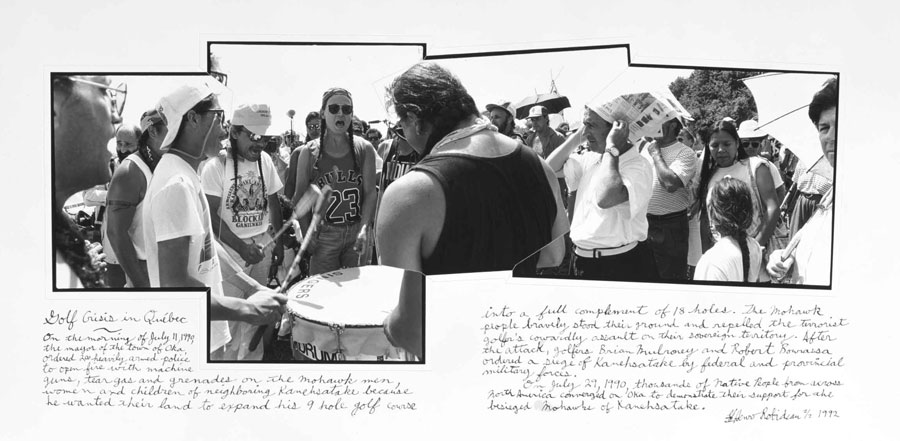 Golf Crisis in Québec
On the morning of July 11, 1990
the mayor of the town of Oka,
ordered heavily armed police
to open fire with machine
guns, tear gas and grenades on the Mohawk men,
women and children of neighboring Kanehsatake because,
he wanted their land to expand his 9 hole golf course
into a full complement of 18 holes. The Mohawk
people bravely stood their ground and repelled the terrorist
golfer's cowardly assault on their sovereign territory. After
the attack, golfers Brian Mulroney and Robert Bourassa
ordered a siege of Kanehsatake by federal and provincial
military forces.
On July 29, 1990, thousands of Native People from across
North America converged on Oka to demonstrate their support for the
besieged Mohawks of Kanehsatake.
1992
BULLS
23
BLOCKIN
GERS
DRUM